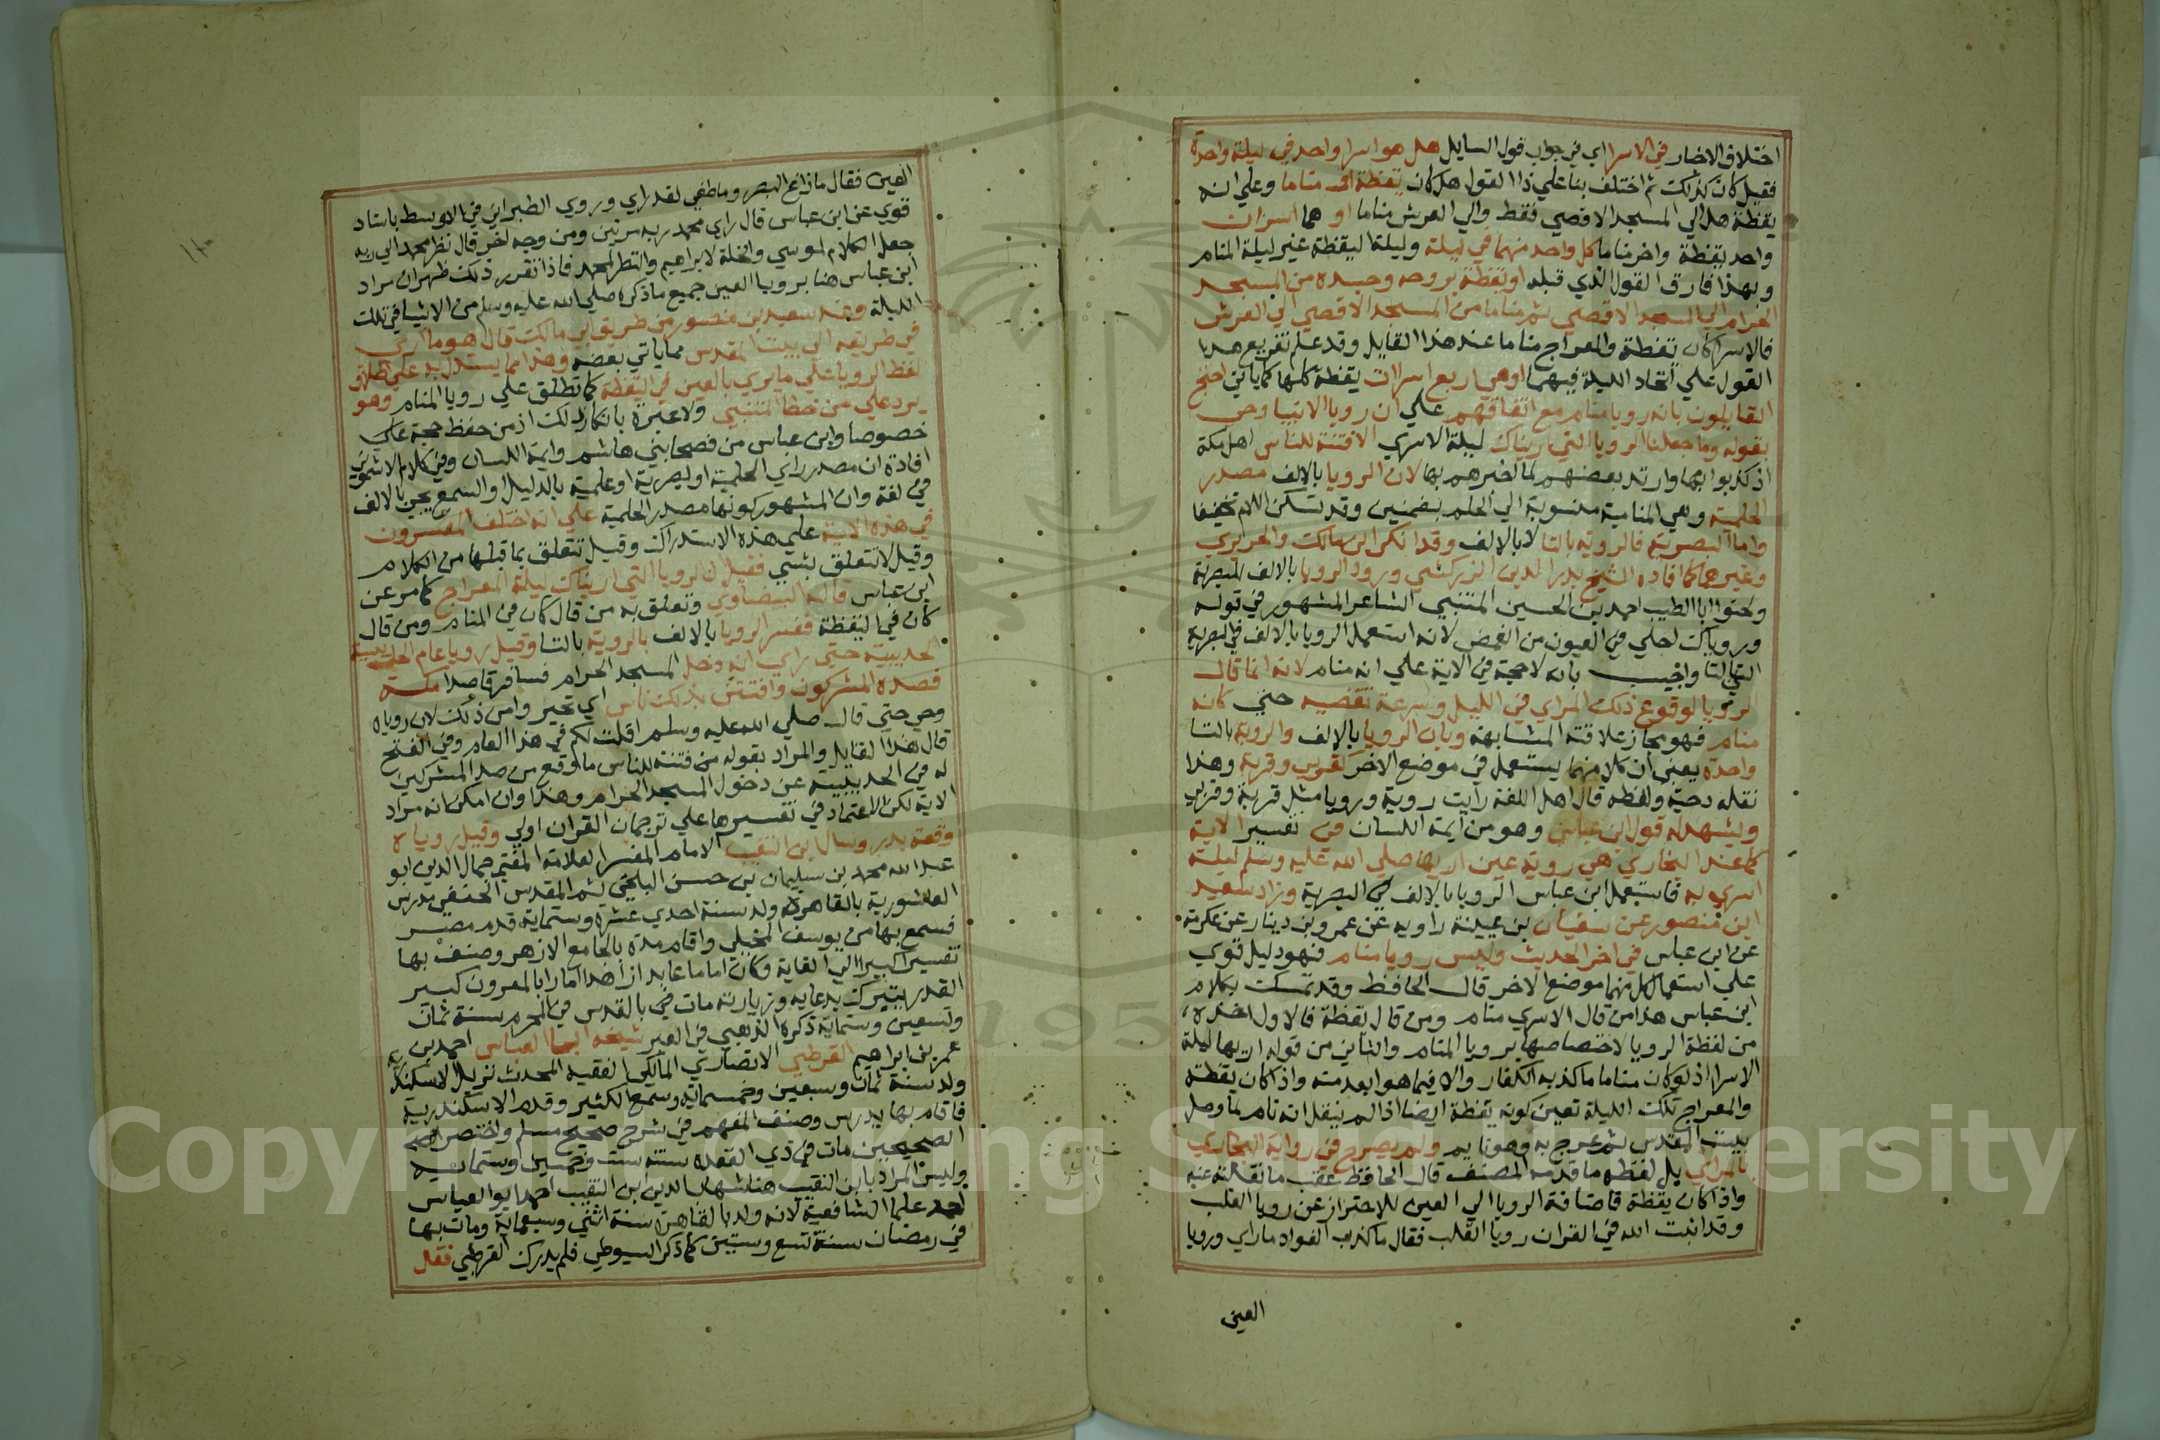 اختلاف الاخبار في الاسرا اي في جواب قول السايل هل هو اسرا واحد في ليلة واحدة
فقيل كان كذلك ثم اختلف بنا علي ذا القول هل كان يقظة او مناما وعلي انه
يقظة هل الي المسجد الاقصي فقط والي العرش مناما او هما اسرآن
واحد يقظة واخر مناما كل واحد منهما في ليلة وليلة اليقظة غير ليلة المنام
وبهذا فارق القول الذي قبله او يقظة بروحه وجسده من المسجد
الحرام الي المسجد الاقصي ثم مناما من المسجد الاقصي الي العرش
فالاسرا كان يقظة والمعراج مناما عند هذا القايل وقد علم تفريع هذا
القول علي اتحاد الليلة فيهما او هي اربع اسرات يقظة كلها كما ياتي احتج
القايلون بانه رويا منام مع اتفاقهم علي ان رويا الانبيا وحي
بقوله وما جعلنا الرويا التي ريناك ليلة الاسري الا فتنة للناس اهل مكة
اذ كذبوا بها وارتد بعضهم لما اخبرهم بها لان الرويا بالالف مصدر
الحلمية وهي المنامية منسوبة الي الحلم بضمتين وقد تسكن اللام تخفيفا
واما البصرية فالروية بالتا لا بالالف وقد انكر ابن مالك والحريري
وغيرهما كما افاده الشيخ بدر الدين الزركشي ورود الرويا بالالف للبصرية
ولحنوا ابا الطيب احمد بن الحسين المتنبي الشاعر المشهور في قوله
ورؤياك احلي في العيون من الغمض لانه استعمل الرويا بالالف في البصرية
التي بالتا واجيب بانه لا حجة في الاية علي انه منام لانه انما قال
الرويا لوقوع ذلك المراي في الليل وسرعة تقضيه حتي كانه
منام فهو مجاز علاقته المشابهة وبان الرويا بالالف والروية بالتا
واحدة يعني ان كلا منهما يستعمل في موضع الاخر كقربي وقربة وهذا
نقله دحية ولفظه قال اهل اللغة رأيت روية ورويا مثل قربة وقربي
ويشهد له قول ابن عباس وهو من ايمة اللسان في تفسير الاية
كما عند البخاري هي روية عين اريها صلي الله عليه وسلم ليلة
اسري به فاستعمل ابن عباس الرويا بالالف في البصرية وزاد سعيد
ابن منصور عن سفيان بن عيينة راويه عن عمرو بن دينار عن عكرمة
عن ابن عباس في اخر الحديث وليس رويا منام فهو دليل قوي
علي استعمال كل منهما موضع الاخر قال الحافظ وقد تمسك بكلام
ابن عباس هذا من قال الاسري منام ومن قال يقظة فالاول اخذه
من لفظة الرويا لاختصاصها برويا المنام والثاني من قوله اريها ليلة
الاسرا اذ لو كان مناما ما كذبه الكفار ولا فيما هو ابعد منه واذا كان يقظة
والمعراج تلك الليلة تعين كونه يقظة ايضا اذ لم ينقل انه نام لما وصل
بيت المقدس ثم عرج به وهو نايم ولم يصرح في رواية البخاري
بالمراي بل لفظه ما قدمه المصنف قال الحافظ عقب ما نقلته عنه
واذا كان يقظة فاضافة الرويا الي العين للاحتراز عن رويا القلب
وقد اثبت الله في القران رويا القلب فقال ما كذب الفواد ما راي ورويا
العين
العين فقال ما زاغ البصر وما طغي لقد راي وروي الطبراني في الاوسط باسناد
قوي عن ابن عباس قال راي محمد ربه مرتين ومن وجه اخر قال نظر محمد الي ربه
جعل الكلام لموسي والخلة لابراهيم والنظر لمحمد فاذا تقرر ذلك ظهر ان مراد
ابن عباس هنا برويا العين جميع ما ذكره صلي الله عليه وسلم من الاشيا في تلك
الليلة وعند سعيد بن منصور من طريق ابي مالك قال هو ما اري
في طريقه الي بيت المقدس مما ياتي بعضه وهذا مما يستدل به علي اطلاق
لفظ الرويا علي ما يري بالعين في اليقظة كما تطلق علي رويا المنام وهو
يرد علي من خطا المتنبي ولا عبرة بانكار ذلك اذ من حفظ حجة علي
خصوصا وابن عباس من فصحا بني هاشم وايمة اللسان وفي كلام الاشموني
افادة ان مصدر راي الحلمية او البصرية او علمية بالدليل او السمع يجي بالالف
في لغة وان المشهور كونها مصدر الحلمية علي انه اختلف المفسرون
في هذه الاية علي هذه الاستدراك وقيل تتعلق بما قبلها من الكلام
وقيل لا تتعلق بشي فقيل ان الرويا التي اريناك ليلة المعراج كما مر عن
ابن عباس قاله البيضاوي وتعلق به من قال كان في المنام ومن قال
كان في اليقظة ففسر الرويا بالالف بالروية بالتا وقيل رويا عام الحديبية
الحديبية حتي راي انه دخل المسجد الحرام فسافر قاصدا مكة
فصده المشركون وافتتن بذلك ناس اي تحير وامن ذلك لان روياه
وحي حتي قال صلي الله عليه وسلم اقلت لكم في هذا العام وفي الفتح
قال هذا القايل والمراد بقوله من فتنة للناس ما وقع من صد المشركين
له في الحديبية عن دخول المسجد الحرام وهذا وان امكن انه مراد
الاية لكن الاعتماد في تفسيرها علي ترجمان القران اولي وقيل روياه
وقعة بدر وسال ابن النقيب الامام المفسر العلامة المفتي جمال الدين ابو
عبد الله محمد بن سليمان بن حسن البلخي ثم المقدسي الحنفي مدرس
العاشورية بالقاهرة ولد سنة احدي عشرة وستماية قدم مصر
فسمع بها من يوسف المخيلي واقام مدة بالجامع الازهر وصنف بها
تفسيرا كبيرا الي الغاية وكان اماما عابدا زاهدا امارا بالمعروف كبير
القدر يتبرك بدعايه وزيارته مات في بالقدس في المحرم سنة ثمان
وتسعين وستماية ذكره الذهبي في العبر شيخه ابا العباس احمد بن
عمر بن ابراهيم القرطبي الانصاري المالكي الفقيه المحدث نزيل الاسكندرية
ولد سنة ثمان وسبعين وخمسماية وسمع الكثير وقدم الاسكندرية
فاقام بها يدرس وصنف المفهم في شرح صحيح مسلم واختصر
الصحيحين مات في ذي القعدة سنة ست وخمسين وستماية
وليس المراد بابن النقيب هنا شهاب الدين ابن النقيب احمد ابو العباس
احد علما الشافعية لانه ولد بالقاهرة سنة اثني وسبعماية ومات بها
في رمضان سنة تسع وستين كما ذكر السيوطي فلم يدرك القرطبي فقال
Copyright © King Saud University
1957